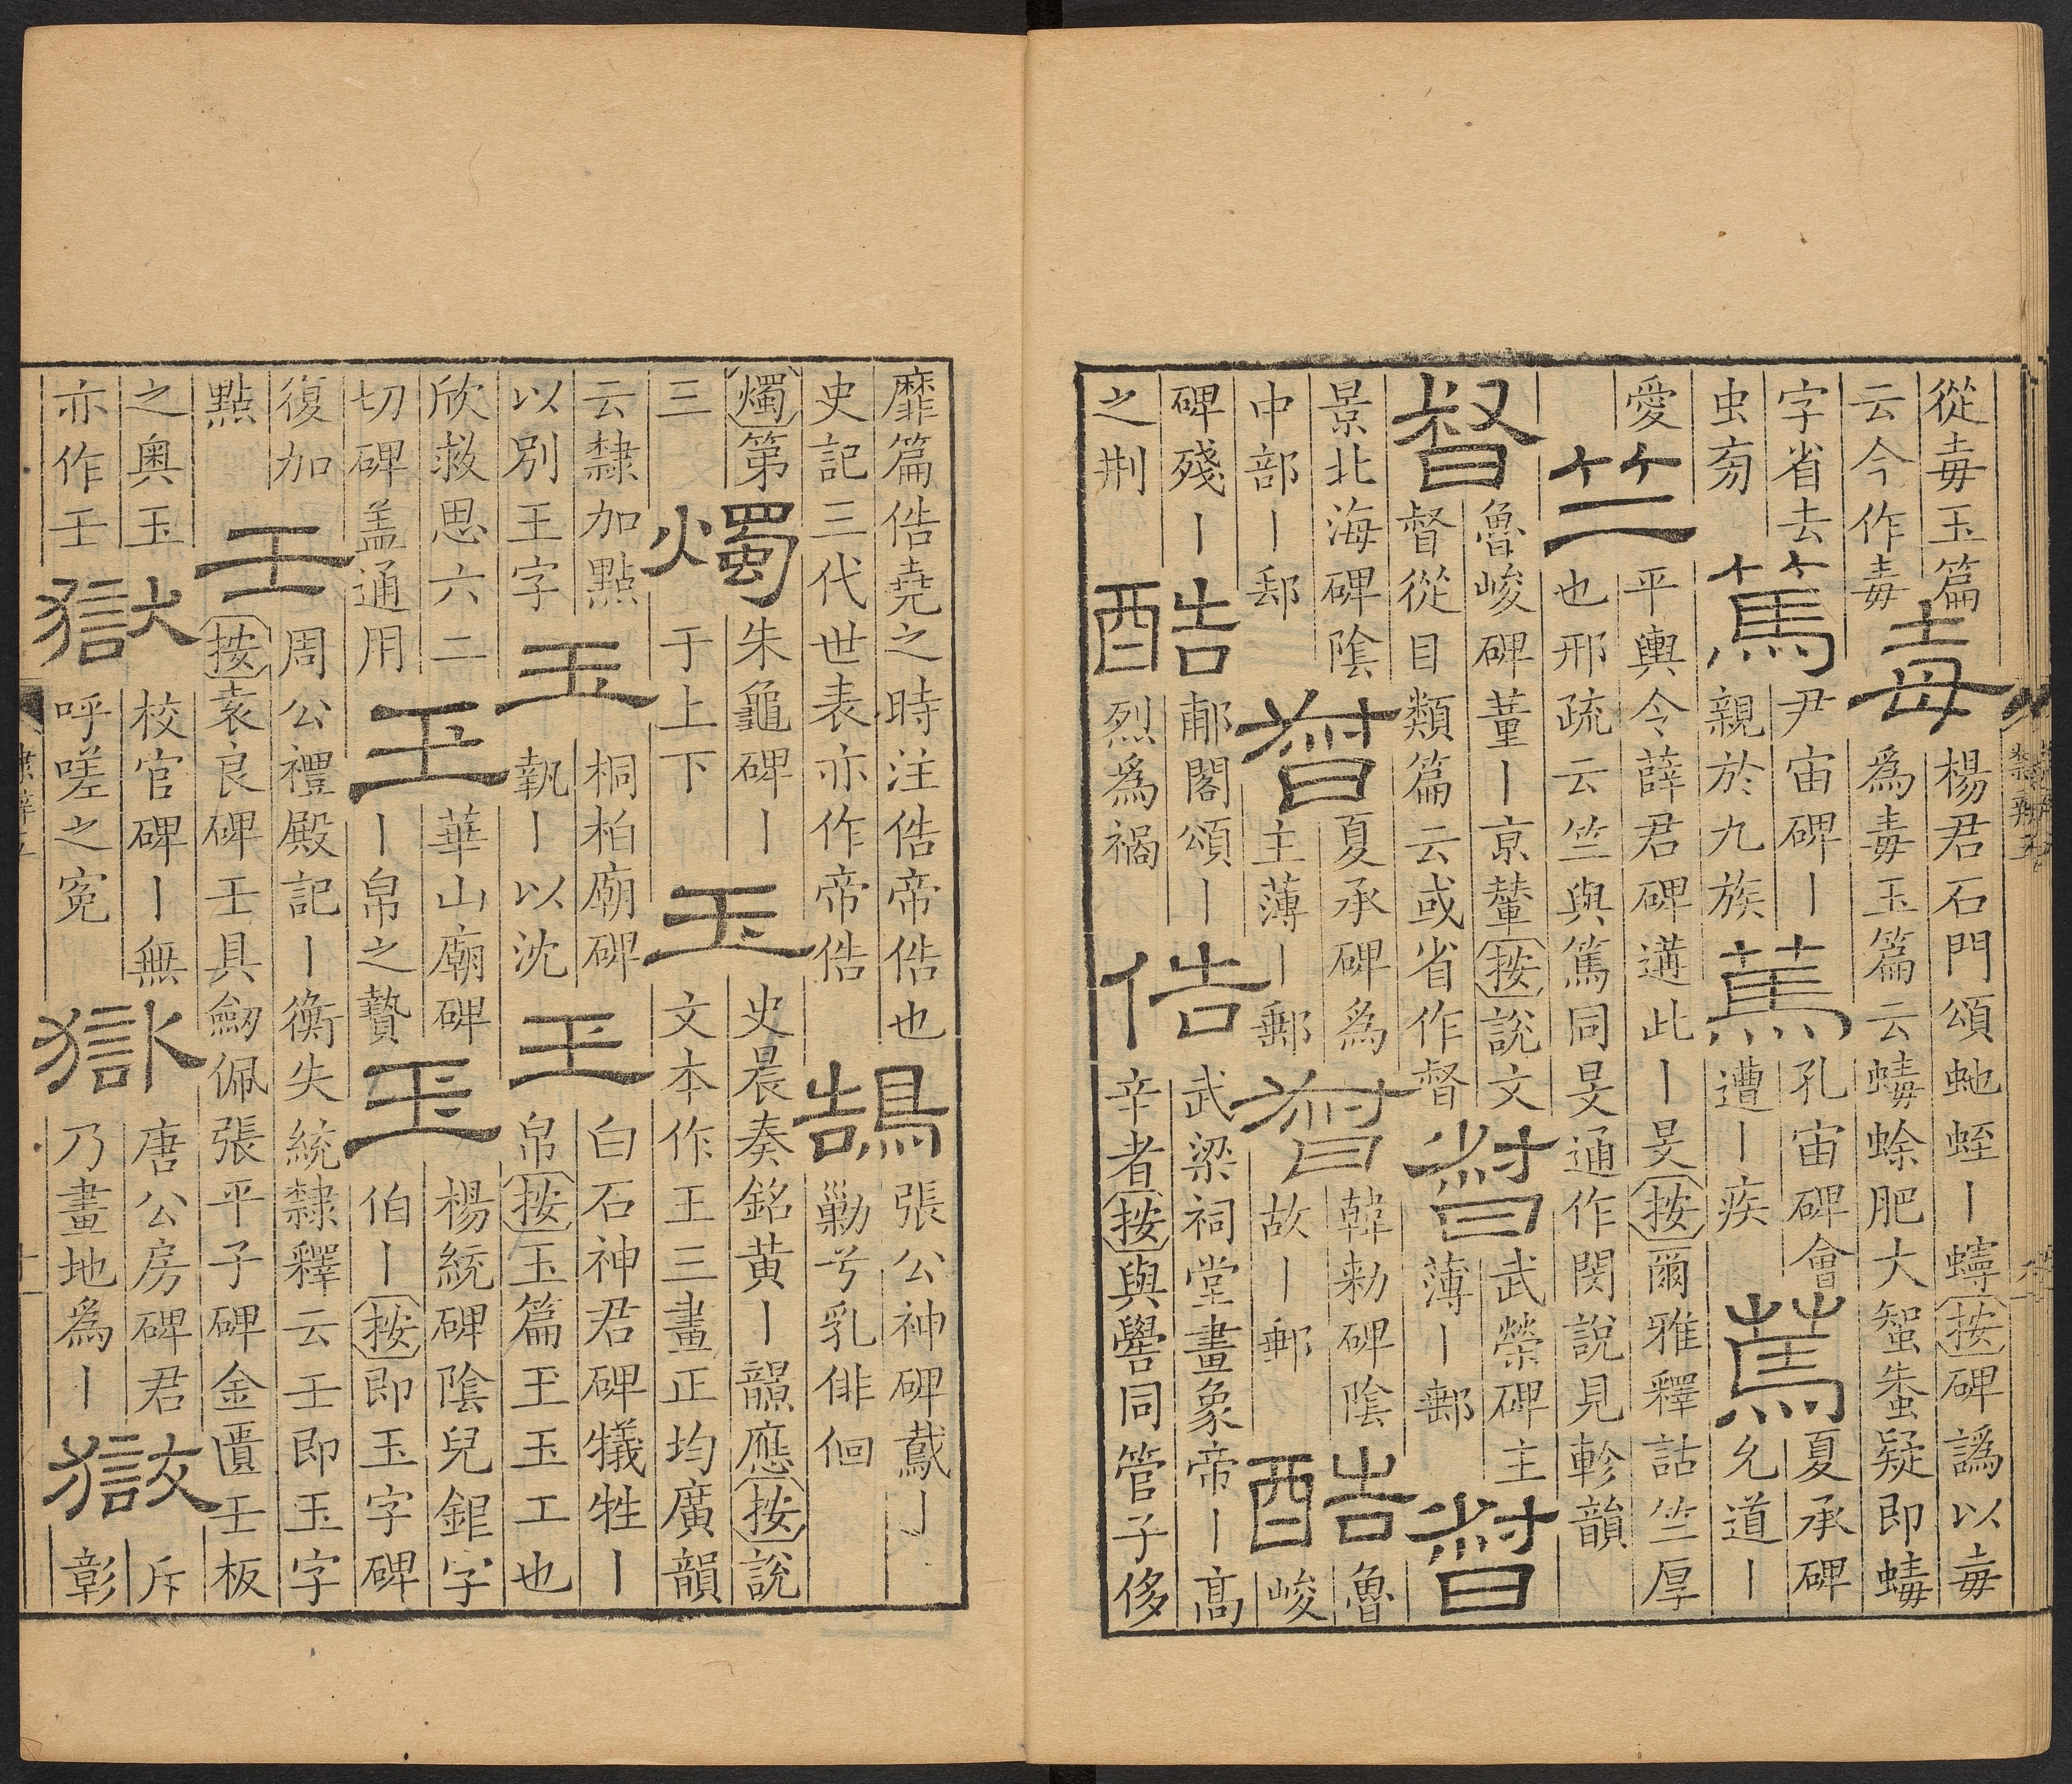 從毒玉篇
云今作毒
毒
楊君石門頌虵蛭丨蟳按碑譌以毒
為毒玉篇云䗋蜍肥大蝁蟱疑即䗋
字省去
虫旁
篤
尹宙碑丨
親於九族
篤
孔宙碑會
遭丨疾
篤
夏承碑
允道丨
愛
竺
平輿令薛君碑遘此丨旻按爾雅釋詁竺厚
也邢疏云竺與篤同旻通作閔說見軫韻
督
魯峻碑董丨京輦按說文
督從目類篇云或省作督
督
武榮碑主
薄丨郵
督
景北海碑陰
中部丨郵
督
夏承碑為
主薄丨郵
督
韓勑碑陰
故丨郵
酷
魯
峻
碑殘丨
之荆
酷
郙閣頌丨
烈為禍
俈
武梁祠堂畫象帝丨高
辛者按與嚳同管子侈
靡篇俈堯之時注俈帝俈也
史記三代世表亦作帝俈
鵠
張公神碑鷻丨
勦兮乳俳佪
燭第
三
燭
朱龜碑丨
于上下
玉
史晨奏銘黄丨䪝應按說
文本作王三畫正均廣韻
云隸加點
以別王字
玉
桐柏廟碑
執丨以沈
玉
白石神君碑犧牲丨
帛按玉篇玊玉工也
欣救思六二
切碑盖通用
玊
華山廟碑
丨帛之贄
玉
楊統碑陰兒銀字
伯丨按即玉字碑
復加
點
壬
周公禮殿記丨衡失統隸釋云壬即玉字
按袁良碑壬具劒佩張平子碑金匱壬板
之奥玉
亦作壬
獄
校官碑丨無
呼嗟之寃
獄
唐公房碑君
乃畫地為丨
獄
斥
彰